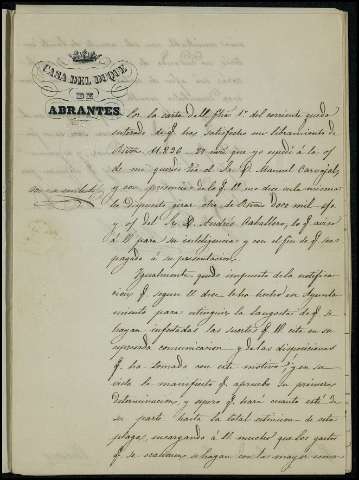 CASA DEL DUQUE
DE
ABRANTES.
Por la carta de V. fha 1º del corriente quedo
enterado de q. ha satisfecho un libramiento de
11.836 que yo espedí á la of
de mi querido tio el Sr. D. Manuel Carvajal,
y con presencia de lo q. V. me dice
dispuesto girar otro de doce mil
y of del Sr. D. Andrés Caballero, lo q. aviso
á V. para su inteligencia y con el fin de q. sea
pagado á su presentacion.
Igualmente quedo impuesto de la notifica-
cion q. segun V. dice le ha hecho ese Ayunta-
miento para estinguir la langosta de q. se
hayan infestadas las suertes q. V. cita en su
espresada comunicacion y de las disposiciones
q. ha tomado con este motivo; y en su
vista le manifiesto q. apruebo su primera
determinacion, y espero q. hará cuanto esté de
su parte hasta la total estincion de esta
plaga, encargando á V. mucho que los gastos
q. se ocasionen se hagan con la mayor econo-